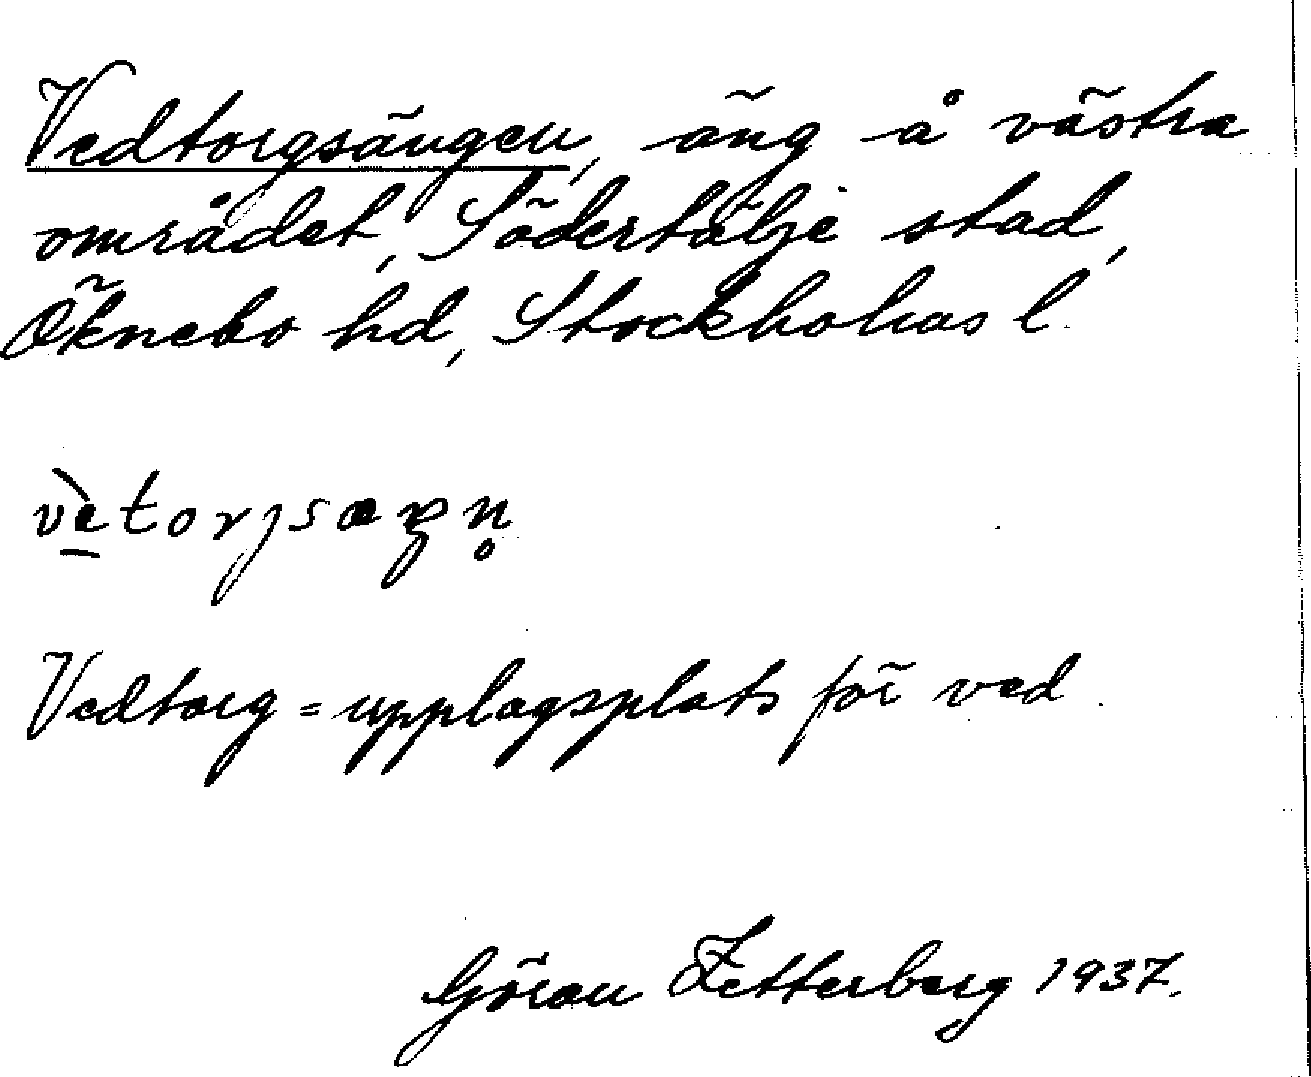 Vedtorgsängen, äng å västra
området, Södertälje stad,
Öknebo hd, Stockholms l.
vètorjsæŋn̥
Vedtorg = upplagsplats för ved.
Göran Zetterberg 1937.